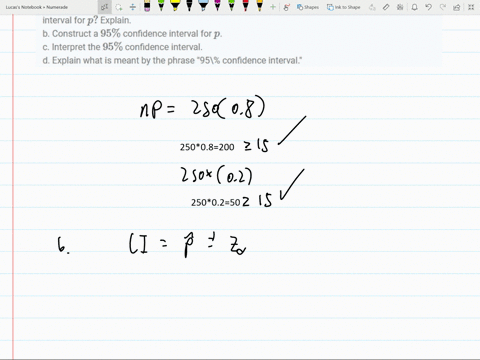 Lucas's Notebook » Numerade
Shapes
Ink to Shape
interval for p? Explain.
b. Construct a 95% confidence interval for p.
c. Interpret the 95% confidence interval.
d. Explain what is meant by the phrase "95\% confidence interval."
nP = 250(0.8)
250*0.8=200 ≥ 15 ✓
250*(0.2)
250*0.2=50 ≥ 15 ✓
b. CI = p̂ ± Zα